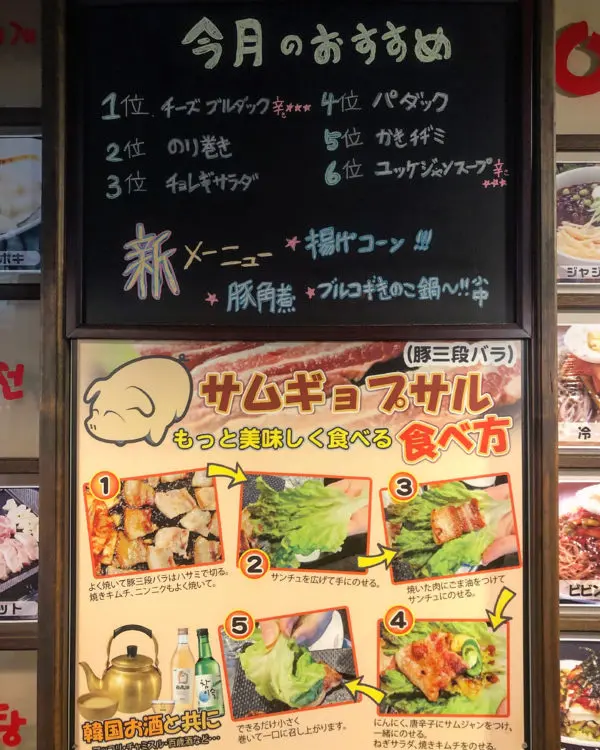 今月のおすすめ
1位 チーズブルダック辛さ★★★
2位 のり巻き
3位 チョレギサラダ
4位 パダック
5位 かきチヂミ
6位 ユッケジャンスープ辛さ★★★
新メーニュー ★揚げコーン!!!
★豚角煮 ★ブルコギきのこ鍋〜!!小中
(豚三段バラ)
サムギョプサル
もっと美味しく食べる 食べ方
1
よく焼いて豚三段バラはハサミで切る。
焼きキムチ、ニンニクもよく焼いて。
2
サンチュを広げて手にのせる。
3
焼いた肉にごま油をつけて
サンチュにのせる。
4
にんにく、唐辛子にサムジャンをつけ、
一緒にのせる。
ねぎサラダ、焼きキムチをのせる。
5
できるだけ小さく
巻いて一口に召し上がります。
韓国お酒と共に
ポキ
ット
ジャジ
冷
ビビン